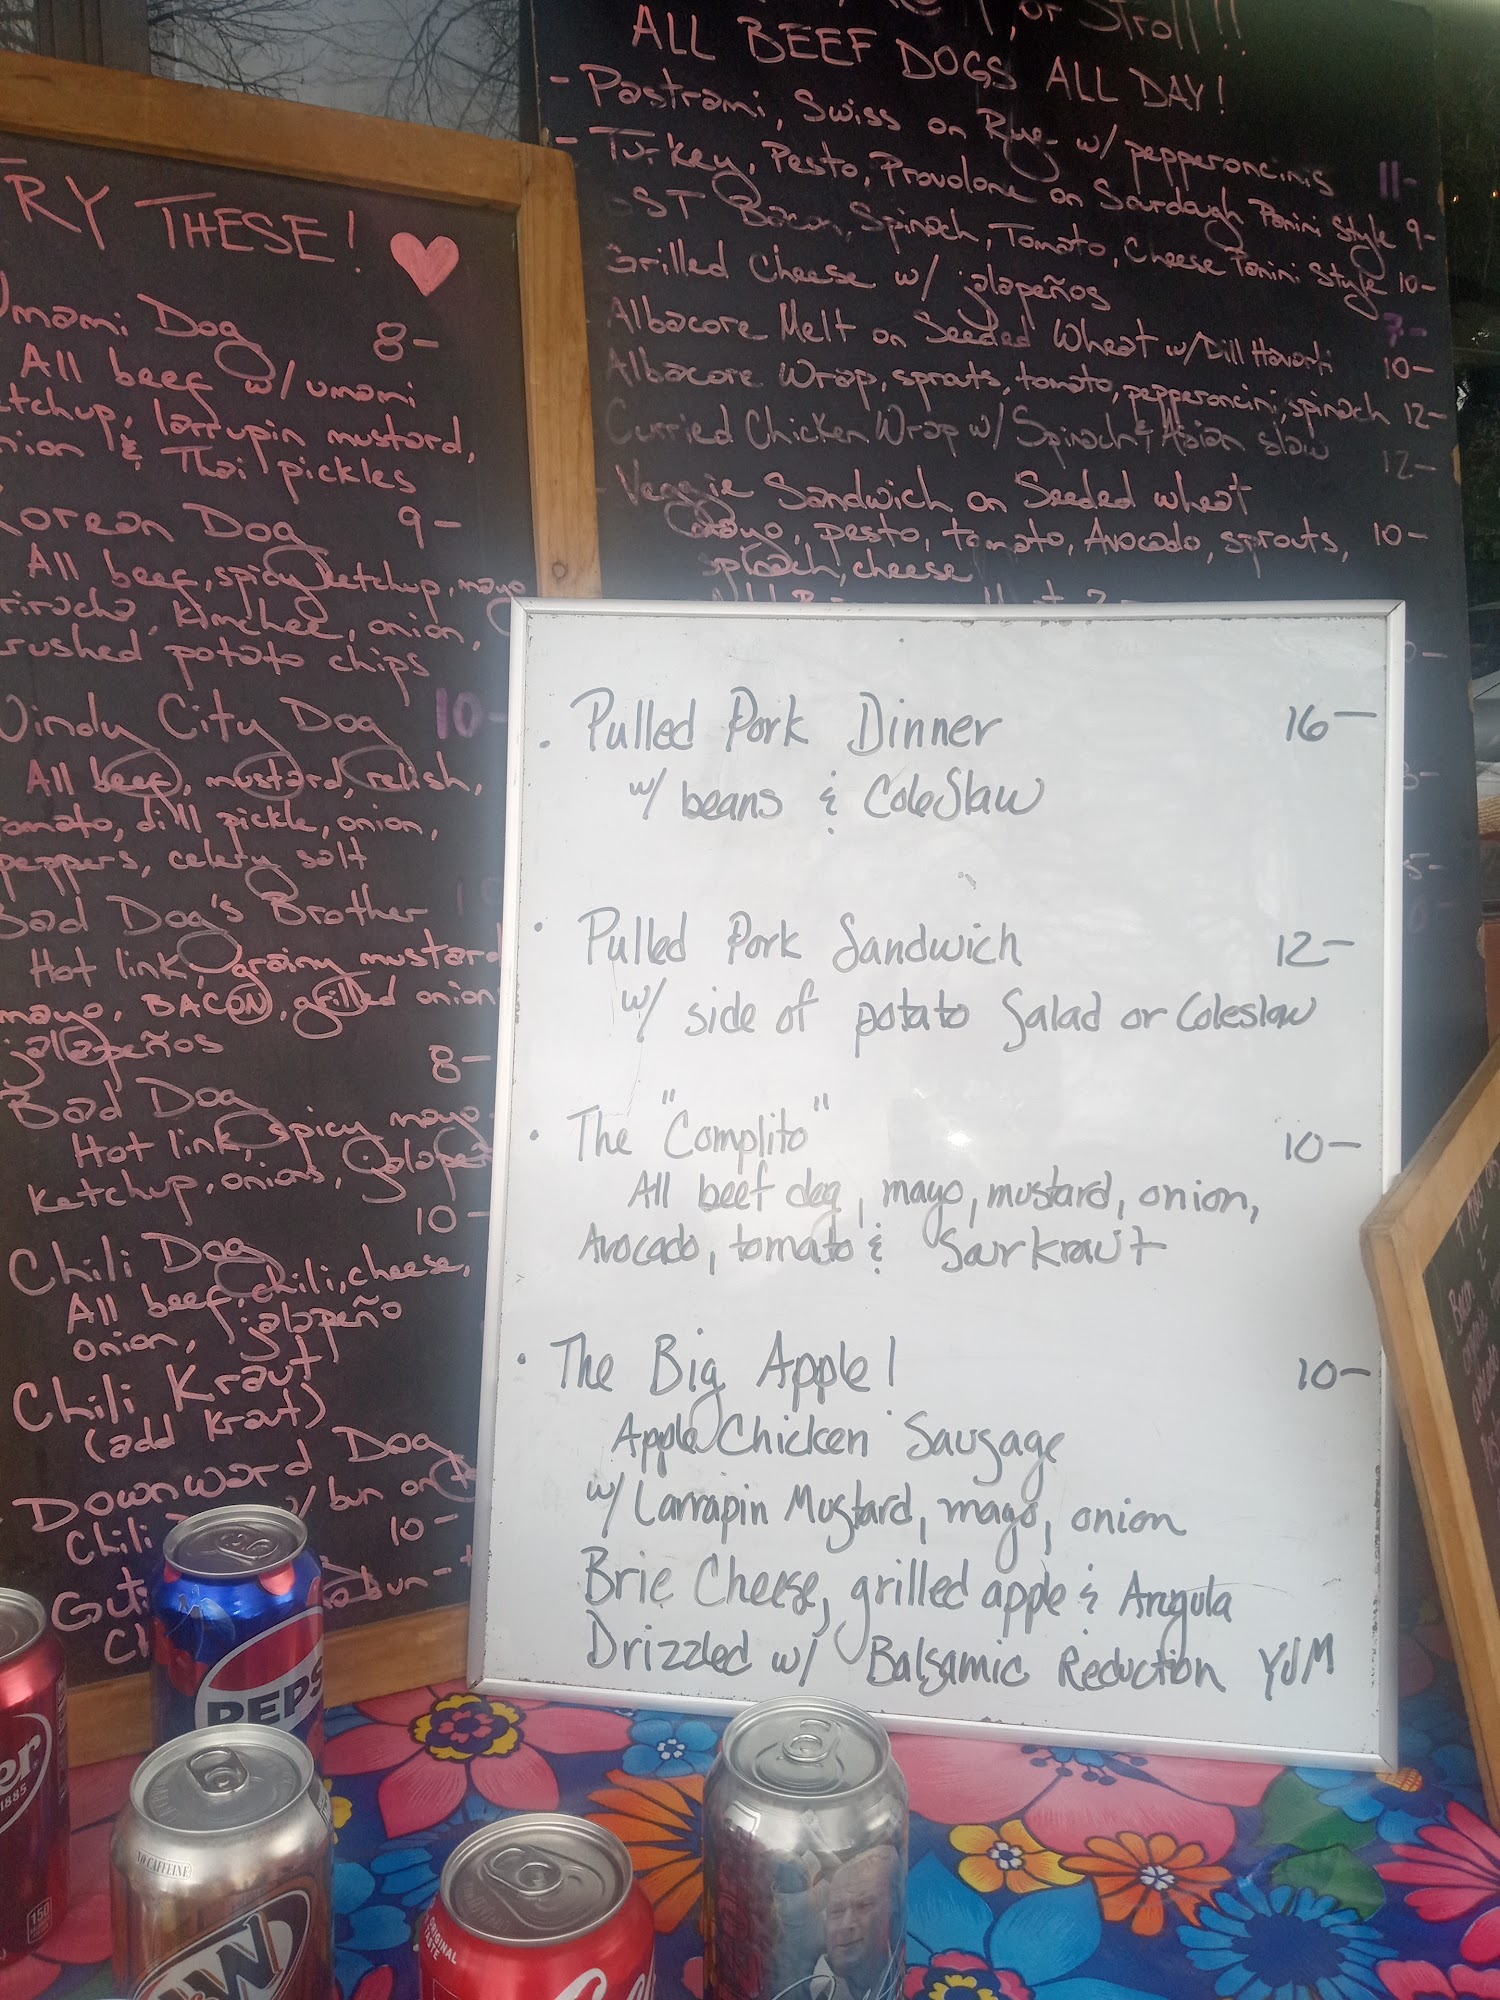 TRY THESE!
Umami Dog 8-
All beef w/ umami
ketchup, larrupin mustard,
onion & Thai pickles
Korean Dog 9-
All beef, spicy ketchup, mayo
sriracha, Kimchee, onion,
crushed potato chips
Windy City Dog 10-
All beef, mustard, relish,
tomato, dill pickle, onion,
peppers, celery salt
Bad Dog's Brother 10
Hot link, grainy mustard
mayo, BACON, grilled onion
jalapeños
Bad Dog 8-
Hot link, spicy mayo
ketchup, onions, jalapeñ
Chili Dog 10-
All beef, chili, cheese,
onion, jalapeño
Chili Kraut
(add kraut)
Downward Dog
Chili w/ bun on
10-
Gut bun-
or Stroll!!
ALL BEEF DOGS ALL DAY!
- Pastrami, Swiss on Rye w/ pepperoncinis 11-
- Turkey, Pesto, Provolone on Sourdough Panini Style 9-
BST Bacon, Spinach, Tomato, Cheese Panini Style 10-
Grilled Cheese w/ jalapeños 7-
Albacore Melt on Seeded Wheat w/ Dill Havarti 10-
Albacore Wrap, sprouts, tomato, pepperoncini, spinach 12-
Curried Chicken Wrap w/ Spinach & Asian slaw 12-
- Veggie Sandwich on Seeded wheat
mayo, pesto, tomato, Avocado, sprouts, 10-
spinach, cheese
• Pulled Pork Dinner 16-
w/ beans & ColeSlaw
• Pulled Pork Sandwich 12-
w/ side of potato Salad or Coleslaw
• The "Complito" 10-
All beef dog, mayo, mustard, onion,
Avocado, tomato & Saurkraut
• The Big Apple! 10-
Apple Chicken Sausage
w/ Larrapin Mustard, mayo, onion
Brie Cheese, grilled apple & Arugula
Drizzled w/ Balsamic Reduction YUM
Bacon
PEPS
er
1885
150
NO CAFFEINE
A&W
ORIGINAL
TASTE